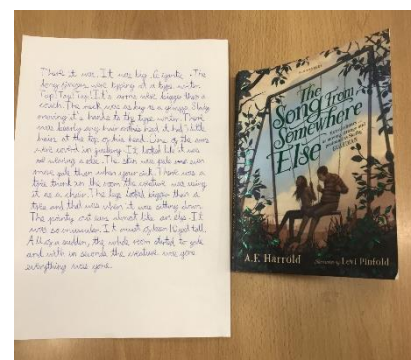 There it was. It was big. Gigantic. The
long fingers were tipping at a type writer.
Tap! Tap! Tap! It's arms were bigger then a
couch. The neck was as big as a giraffe. Slowly
moving it's hands to the type writer. There
was bearly any hair on his head it had little
hairs at the top of his head. One of the arms
were coverd in. It looked like it was
wearing a robe. The skin was pale and even
more pale then when your sick. There was a
tree trunk in the room the creature was using
it as a chair. The legs looked bigger than a
tree and that was when it was sitting down.
The pointy ears was almost like an elf. It
was so muscular. It must of been 10 feet tall.
All of a sudden, the whole room started to
and with in seconds, the creature was gone
everything was gone.
The
Song from
Somewhere
Else
A.F. Harrold
Levi Pinfold